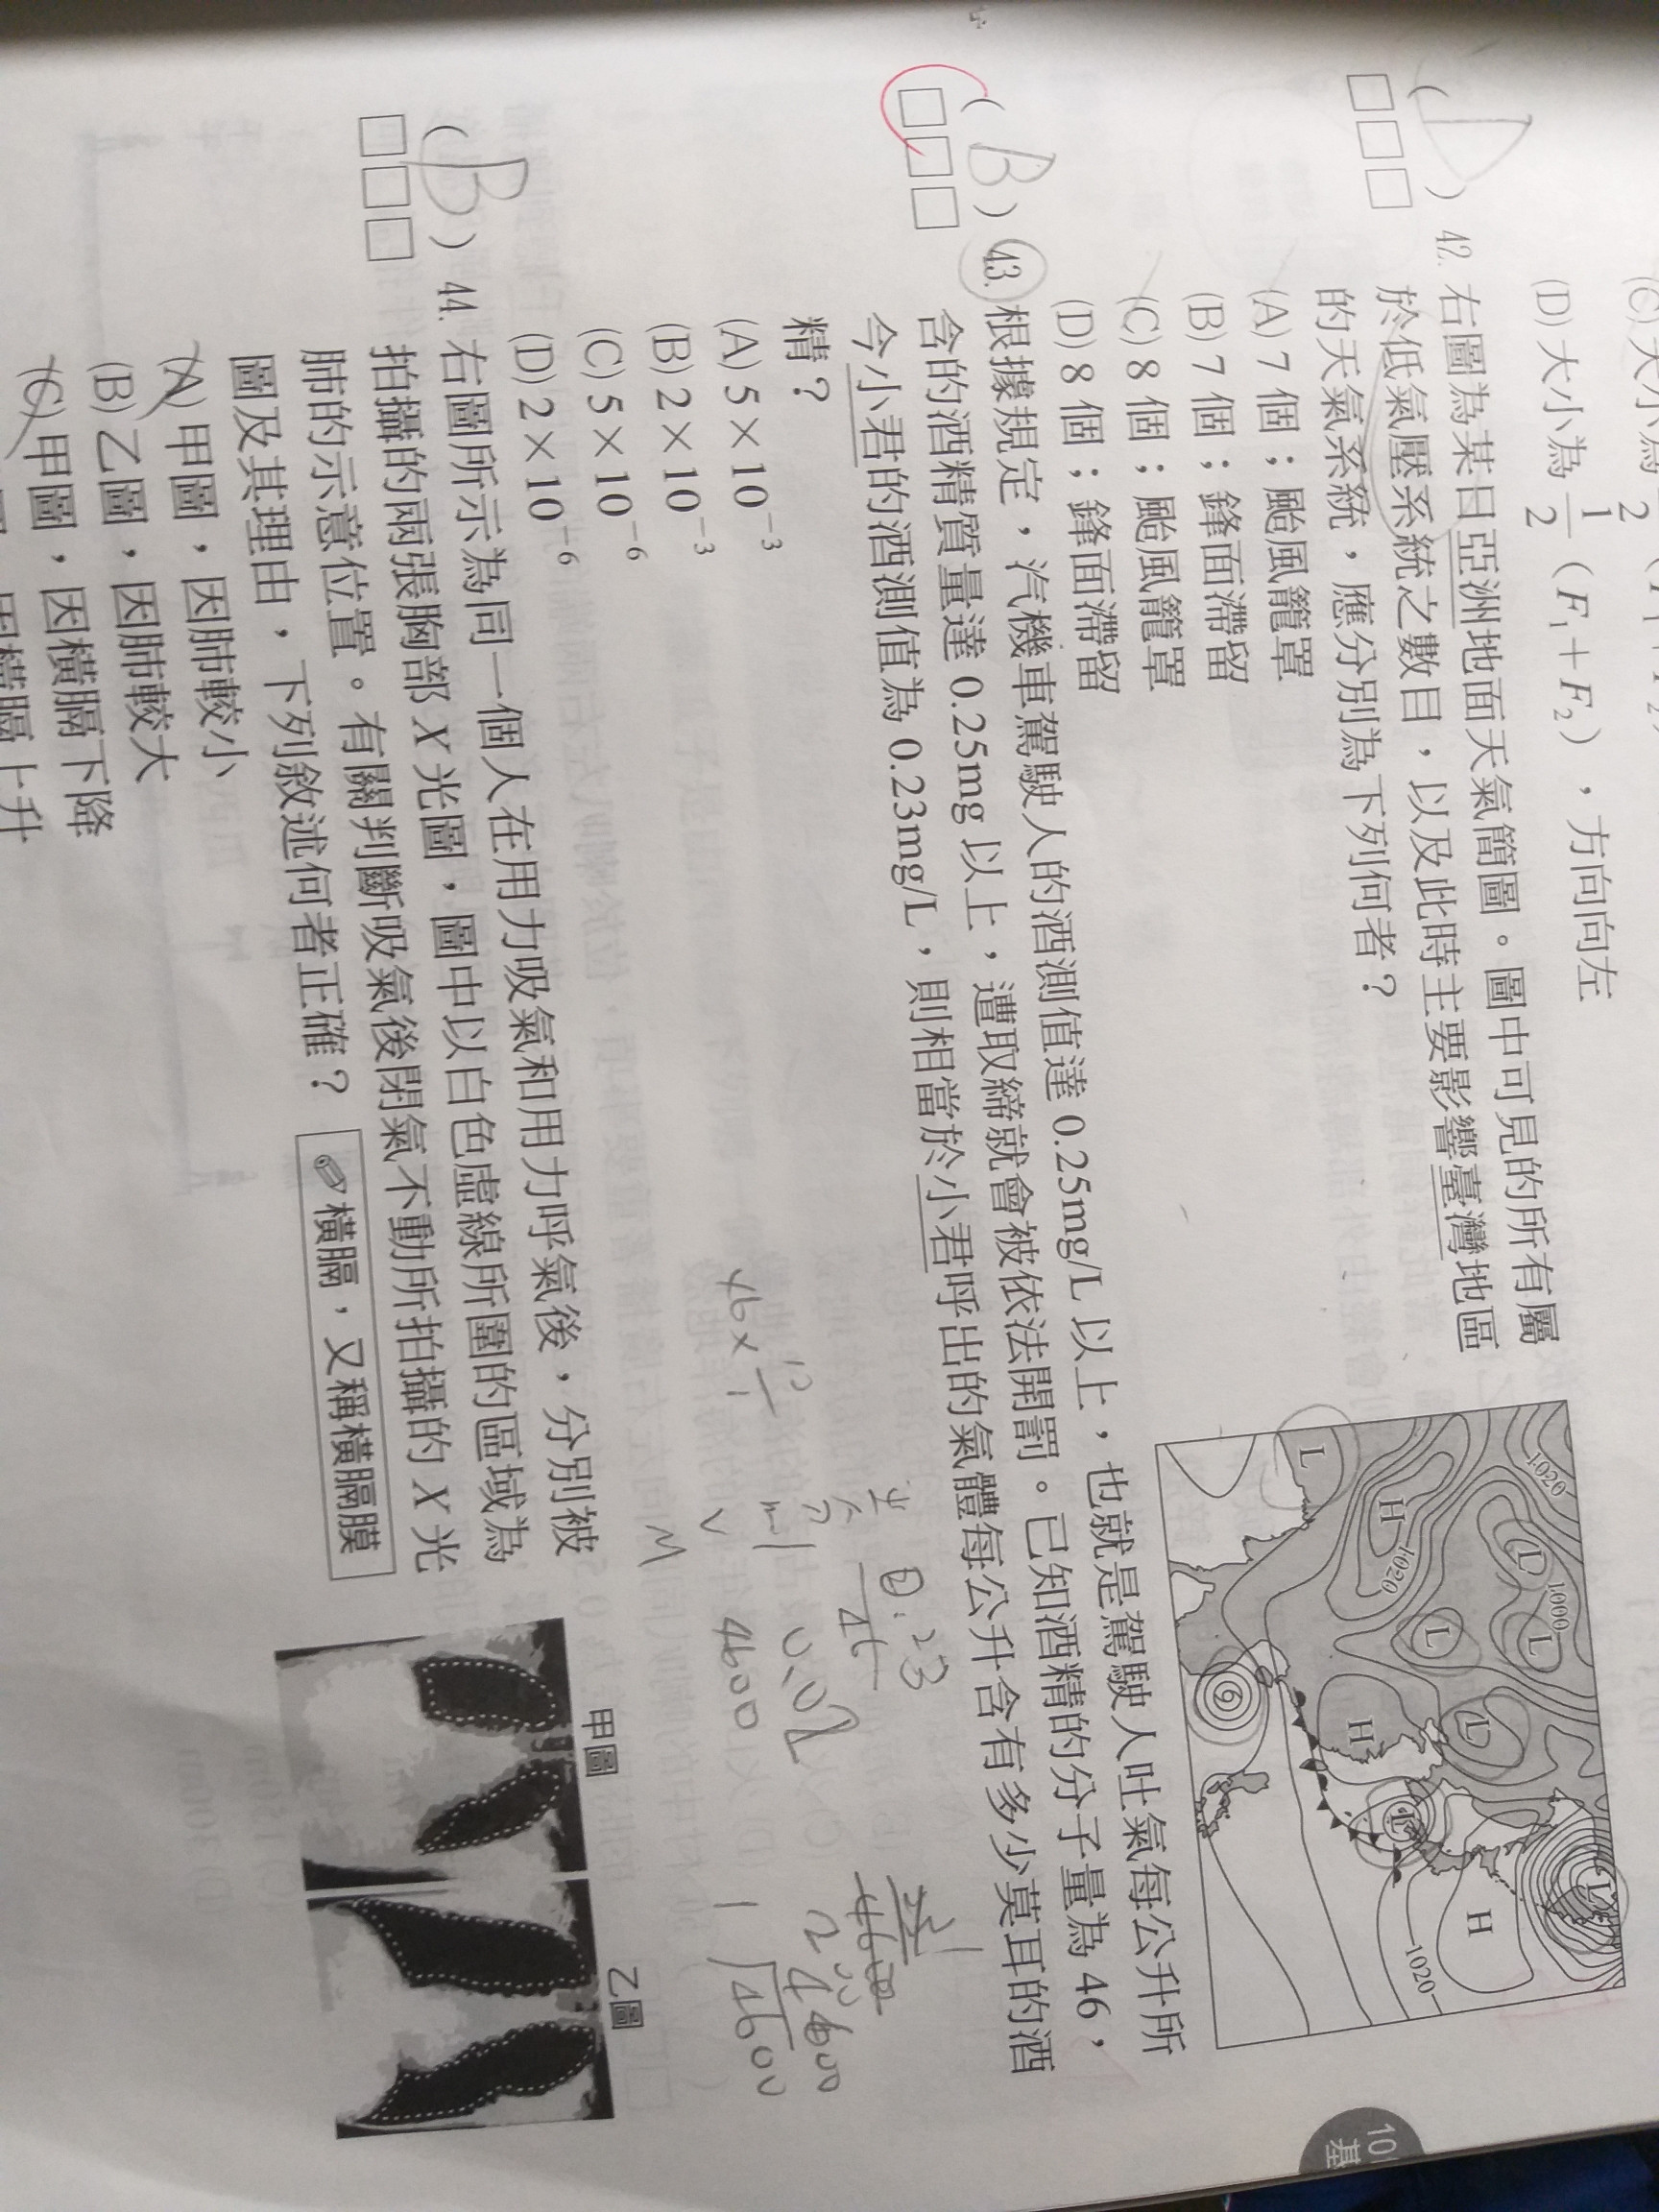 (D) 大小為 1/2 (F₁＋F₂)，方向向左
( D ) 42. 右圖為某日亞洲地面天氣簡圖。圖中可見的所有屬
於低氣壓系統之數目，以及此時主要影響臺灣地區
的天氣系統，應分別為下列何者？
(A) 7 個；颱風籠罩
(B) 7 個；鋒面滯留
(C) 8 個；颱風籠罩
(D) 8 個；鋒面滯留
1020
1000
L
L
L
H
1020
L
L
H
L
L
H
1020
( B ) 43. 根據規定，汽機車駕駛人的酒測值達 0.25mg/L 以上，也就是駕駛人吐氣每公升所
含的酒精質量達 0.25mg 以上，遭取締就會被依法開罰。已知酒精的分子量為 46，
今小君的酒測值為 0.23mg/L，則相當於小君呼出的氣體每公升含有多少莫耳的酒
精？
(A) 5×10⁻³
(B) 2×10⁻³
(C) 5×10⁻⁶
(D) 2×10⁻⁶
0.23
46
4600
4600
( B ) 44. 右圖所示為同一個人在用力吸氣和用力呼氣後，分別被
拍攝的兩張胸部 X 光圖，圖中以白色虛線所圍的區域為
肺的示意位置。有關判斷吸氣後閉氣不動所拍攝的 X 光
圖及其理由，下列敘述何者正確？
✎橫膈，又稱橫膈膜
(A) 甲圖，因肺較小
(B) 乙圖，因肺較大
(C) 甲圖，因橫膈下降
因橫膈上升
甲圖
乙圖
10
基